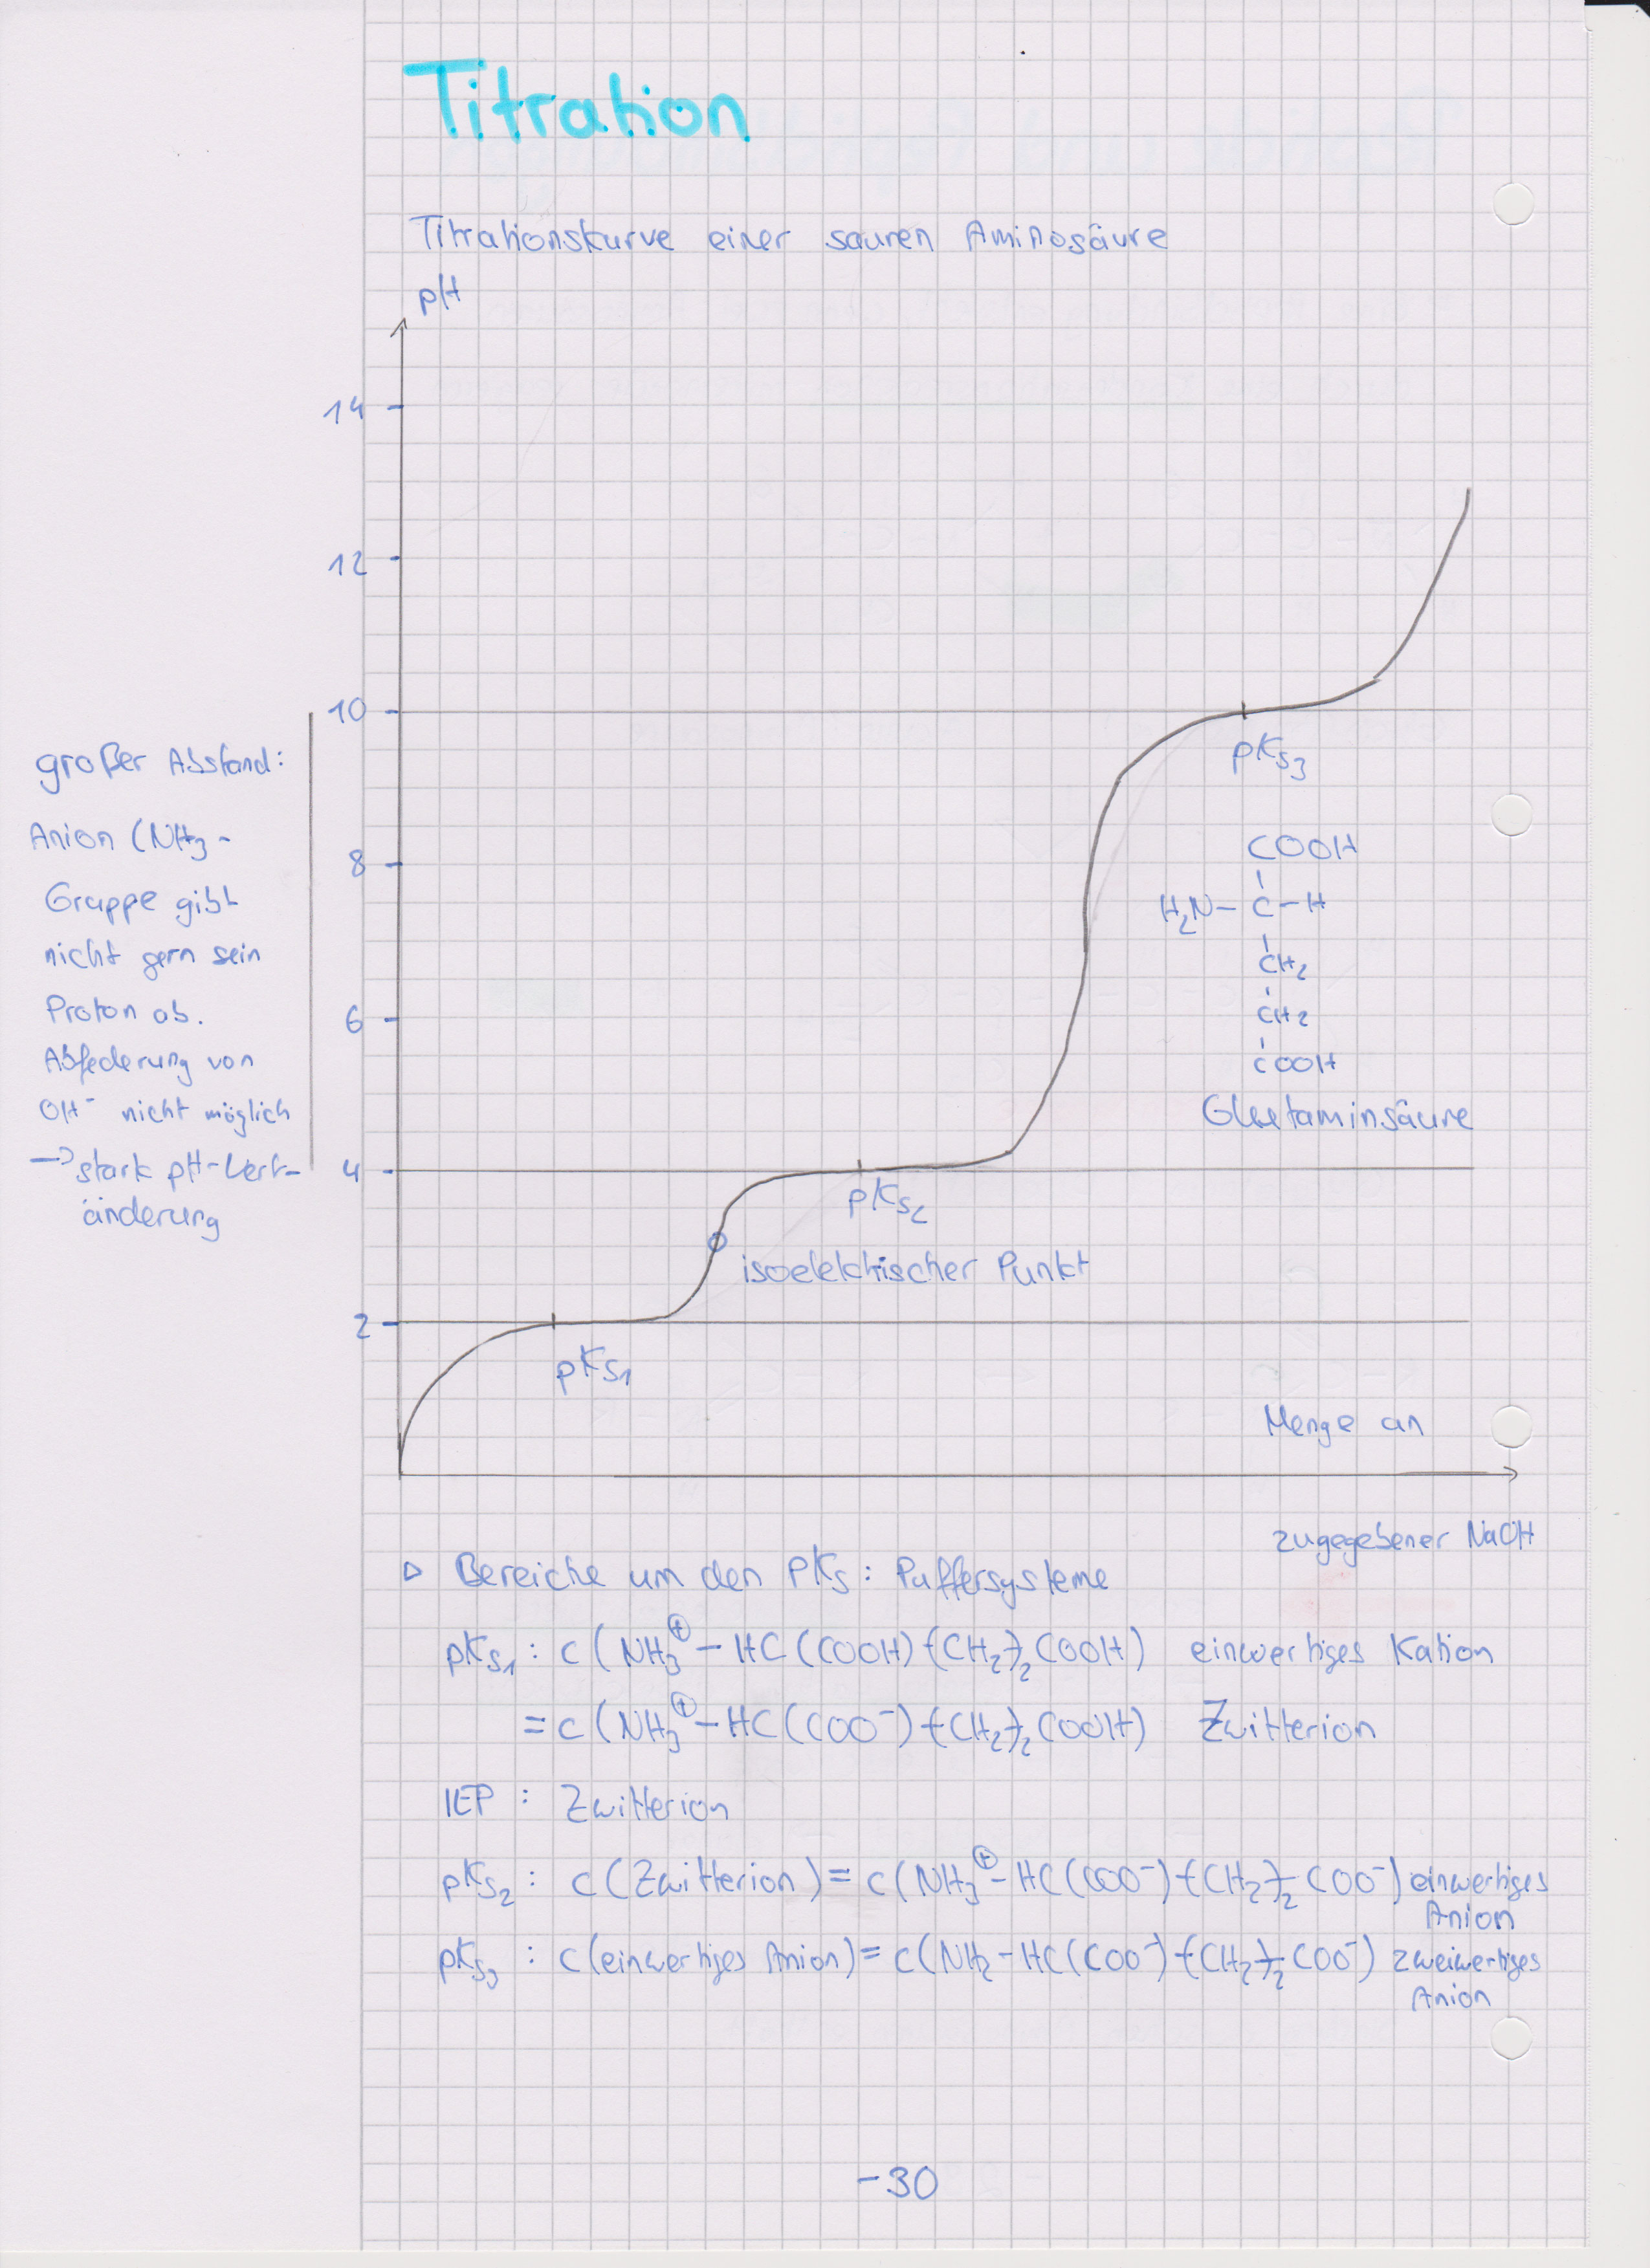 Titration
Titrationskurve einer sauren Aminosäure
pH
14
12
10
großer Abstand:
pKS3
Anion (NH3-
8
COOH
Gruppe gibt
H2N-C-H
nicht gern sein
CH2
Proton ab.
6
CH2
Abfederung von
COOH
OH⁻ nicht möglich
Glutaminsäure
→ stark pH-Verä-
4
änderung
pKS2
isoelektrischer Punkt
2
pKS1
Menge an
zugegebener NaOH
▷ Bereiche um den pKS: Puffersysteme
pKS1: c(NH3⊕-HC(COOH)-(CH2)-2COOH) einwertiges Kation
= c(NH3⊕-HC(COO⁻)-(CH2)-2COOH) Zwitterion
IEP: Zwitterion
pKS2: c(Zwitterion) = c(NH3⊕-HC(COO⁻)-(CH2)-2COO⁻) einwertiges
Anion
pKS3: c(einwertiges Anion) = c(NH2-HC(COO⁻)-(CH2)-2COO⁻) zweiwertiges
Anion
-30